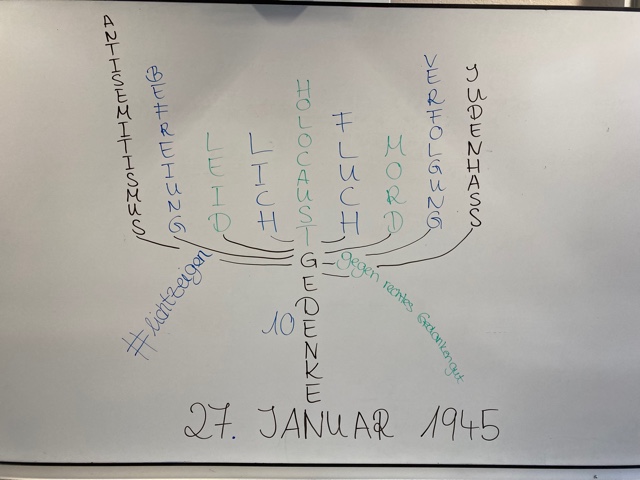 ANTISEMITISMUS
BEFREIUNG
LEID
LICH
HOLOCAUST
FLUCH
MORD
VERFOLGUNG
JUDENHASS
GEDENKE
#lichtzeigen
gegen rechtes Gedankengut
10
27. JANUAR 1945